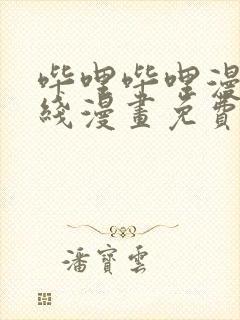 哔哩哔哩漫
綫漫畫免費
潘寶雲